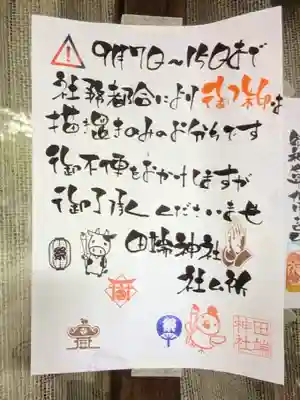 9月7日〜15日まで
社務都合により御朱印は
描き置きのみのお分ちです
御不便をおかけしますが
御了承くださいませ
田端神社
社ム所
祭
祭
田端
神社